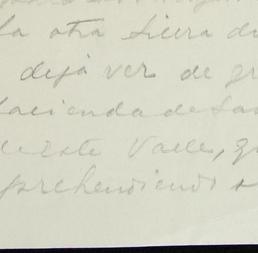 la otra Sierra de
dejá ver de gr
Hacienda de San
de este Valle, q
prehendiendo a